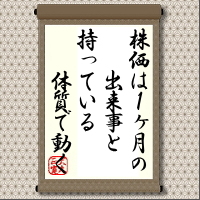 株価は1ヶ月の
出来事と
持っている
体質で動く